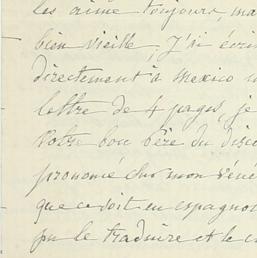 les aime toujours, ma
bien vieille; J'ai écri
directement a Mexico u
lettre de 4 pages, je
Votre bon père du disc
prononcé chez mon véné
que ce soit en espagno
pu le traduire et le c